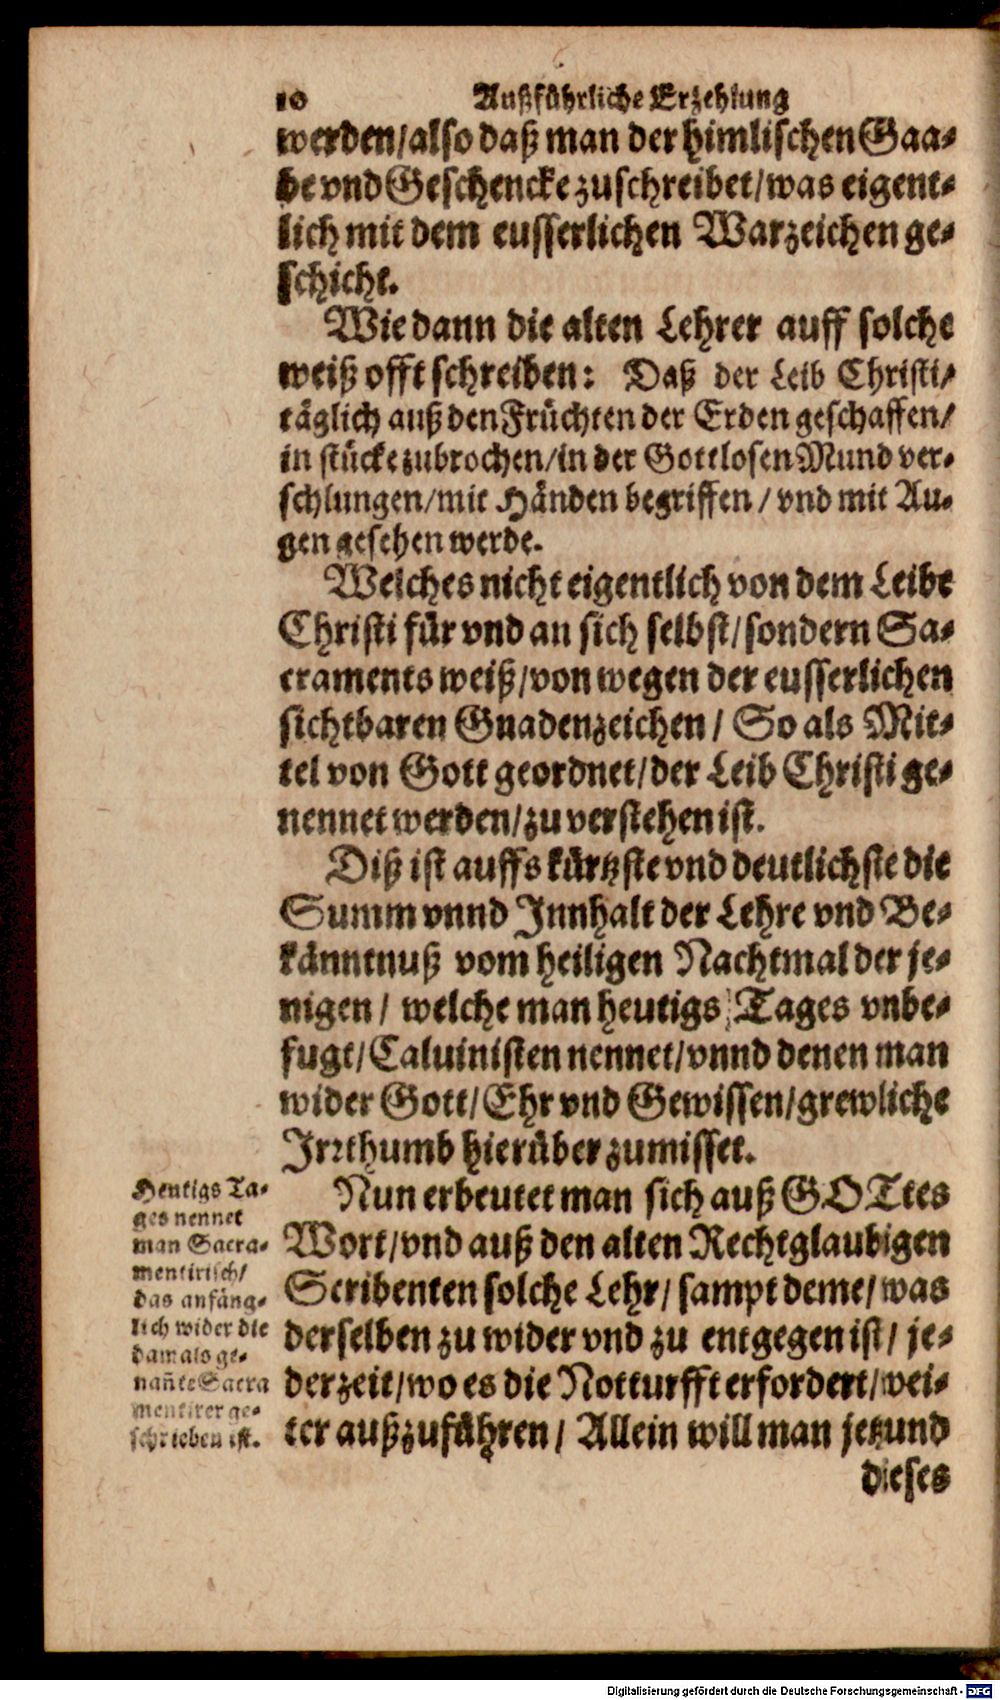 10 Außführliche Erzehlung
werden/also daß man der himlischen Gaa-
be vnd Geschencke zuschreibet/was eigent-
lich mit dem eusserlichen Warzeichen ge-
schicht.
Wie dann die alten Lehrer auff solche
weiß offt schreiben: Daß der Leib Christi/
täglich auß den Früchten der Erden geschaffen/
in stücke zubrochen/in der Gottlosen Mund ver-
schlungen/mit Händen begriffen/vnd mit Au-
gen gesehen werde.
Welches nicht eigentlich von dem Leibe
Christi für vnd an sich selbst/sondern Sa-
craments weiß/von wegen der eusserlichen
sichtbaren Gnadenzeichen/ So als Mit-
tel von Gott geordnet/der Leib Christi ge-
nennet werden/zu verstehen ist.
Diß ist auffs kürtzste vnd deutlichste die
Summ vnnd Innhalt der Lehre vnd Be-
känntnuß vom heiligen Nachtmal der je-
nigen/ welche man heutigs Tages vnbe-
fugt/Caluinisten nennet/vnnd denen man
wider Gott/Ehr vnd Gewissen/grewliche
Irrthumb hierüber zumisset.
Nun erbeutet man sich auß GOTtes
Wort/vnd auß den alten Rechtglaubigen
Scribenten solche Lehr/ sampt deme/was
derselben zu wider vnd zu entgegen ist/ je-
derzeit/wo es die Notturfft erfordert/wei-
ter außzuführen/ Allein will man jetzund
dieses
Heutigs Ta-
ges nennet
man Sacra-
mentirisch/
das anfäng-
lich wider die
damals ge-
nañte Sacra
mentirer ge-
schrieben ist.
Digitalisierung gefördert durch die Deutsche Forschungsgemeinschaft - DFG